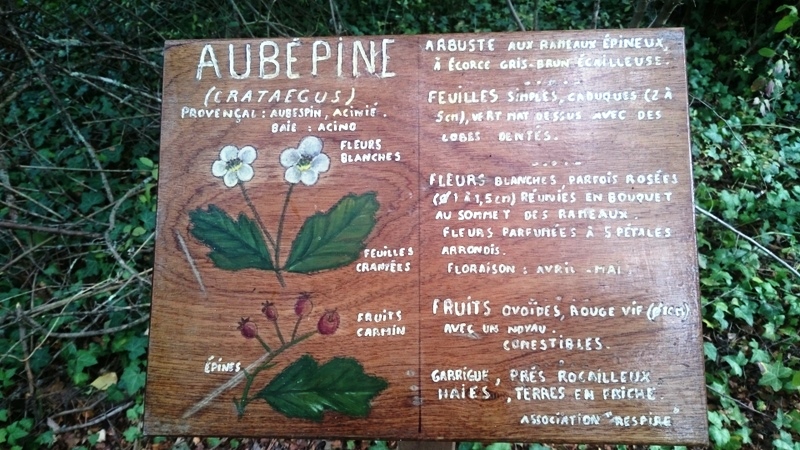 AUBÉPINE
(CRATAEGUS)
PROVENÇAL : AUBESPIN, ACINIÉ.
BAIE : ACINO
FLEURS
BLANCHES
FEUILLES
CRANTÉES
FRUITS
CARMIN
ÉPINES
ARBUSTE AUX RAMEAUX ÉPINEUX,
À ÉCORCE GRIS-BRUN ÉCAILLEUSE.
FEUILLES SIMPLES, CADUQUES (2 À
5cm), VERT MAT DESSUS AVEC DES
LOBES DENTÉS.
FLEURS BLANCHES, PARFOIS ROSÉES
(Ø 1 à 1,5cm) RÉUNIES EN BOUQUET
AU SOMMET DES RAMEAUX.
FLEURS PARFUMÉES À 5 PÉTALES
ARRONDIS.
FLORAISON : AVRIL - MAI
FRUITS OVOÏDES, ROUGE VIF (Ø 1cm)
AVEC UN NOYAU.
COMESTIBLES.
GARRIGUE, PRÉS ROCAILLEUX
HAIES, TERRES EN FRICHE.
ASSOCIATION "RESPIRE"